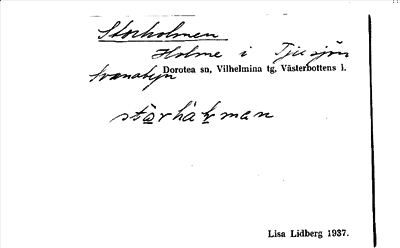 Storholmen
Holme i Tjusjön
Svanabyn
Dorotea sn, Vilhelmina tg, Västerbottens l.
stårhåḷman
Lisa Lidberg 1937.